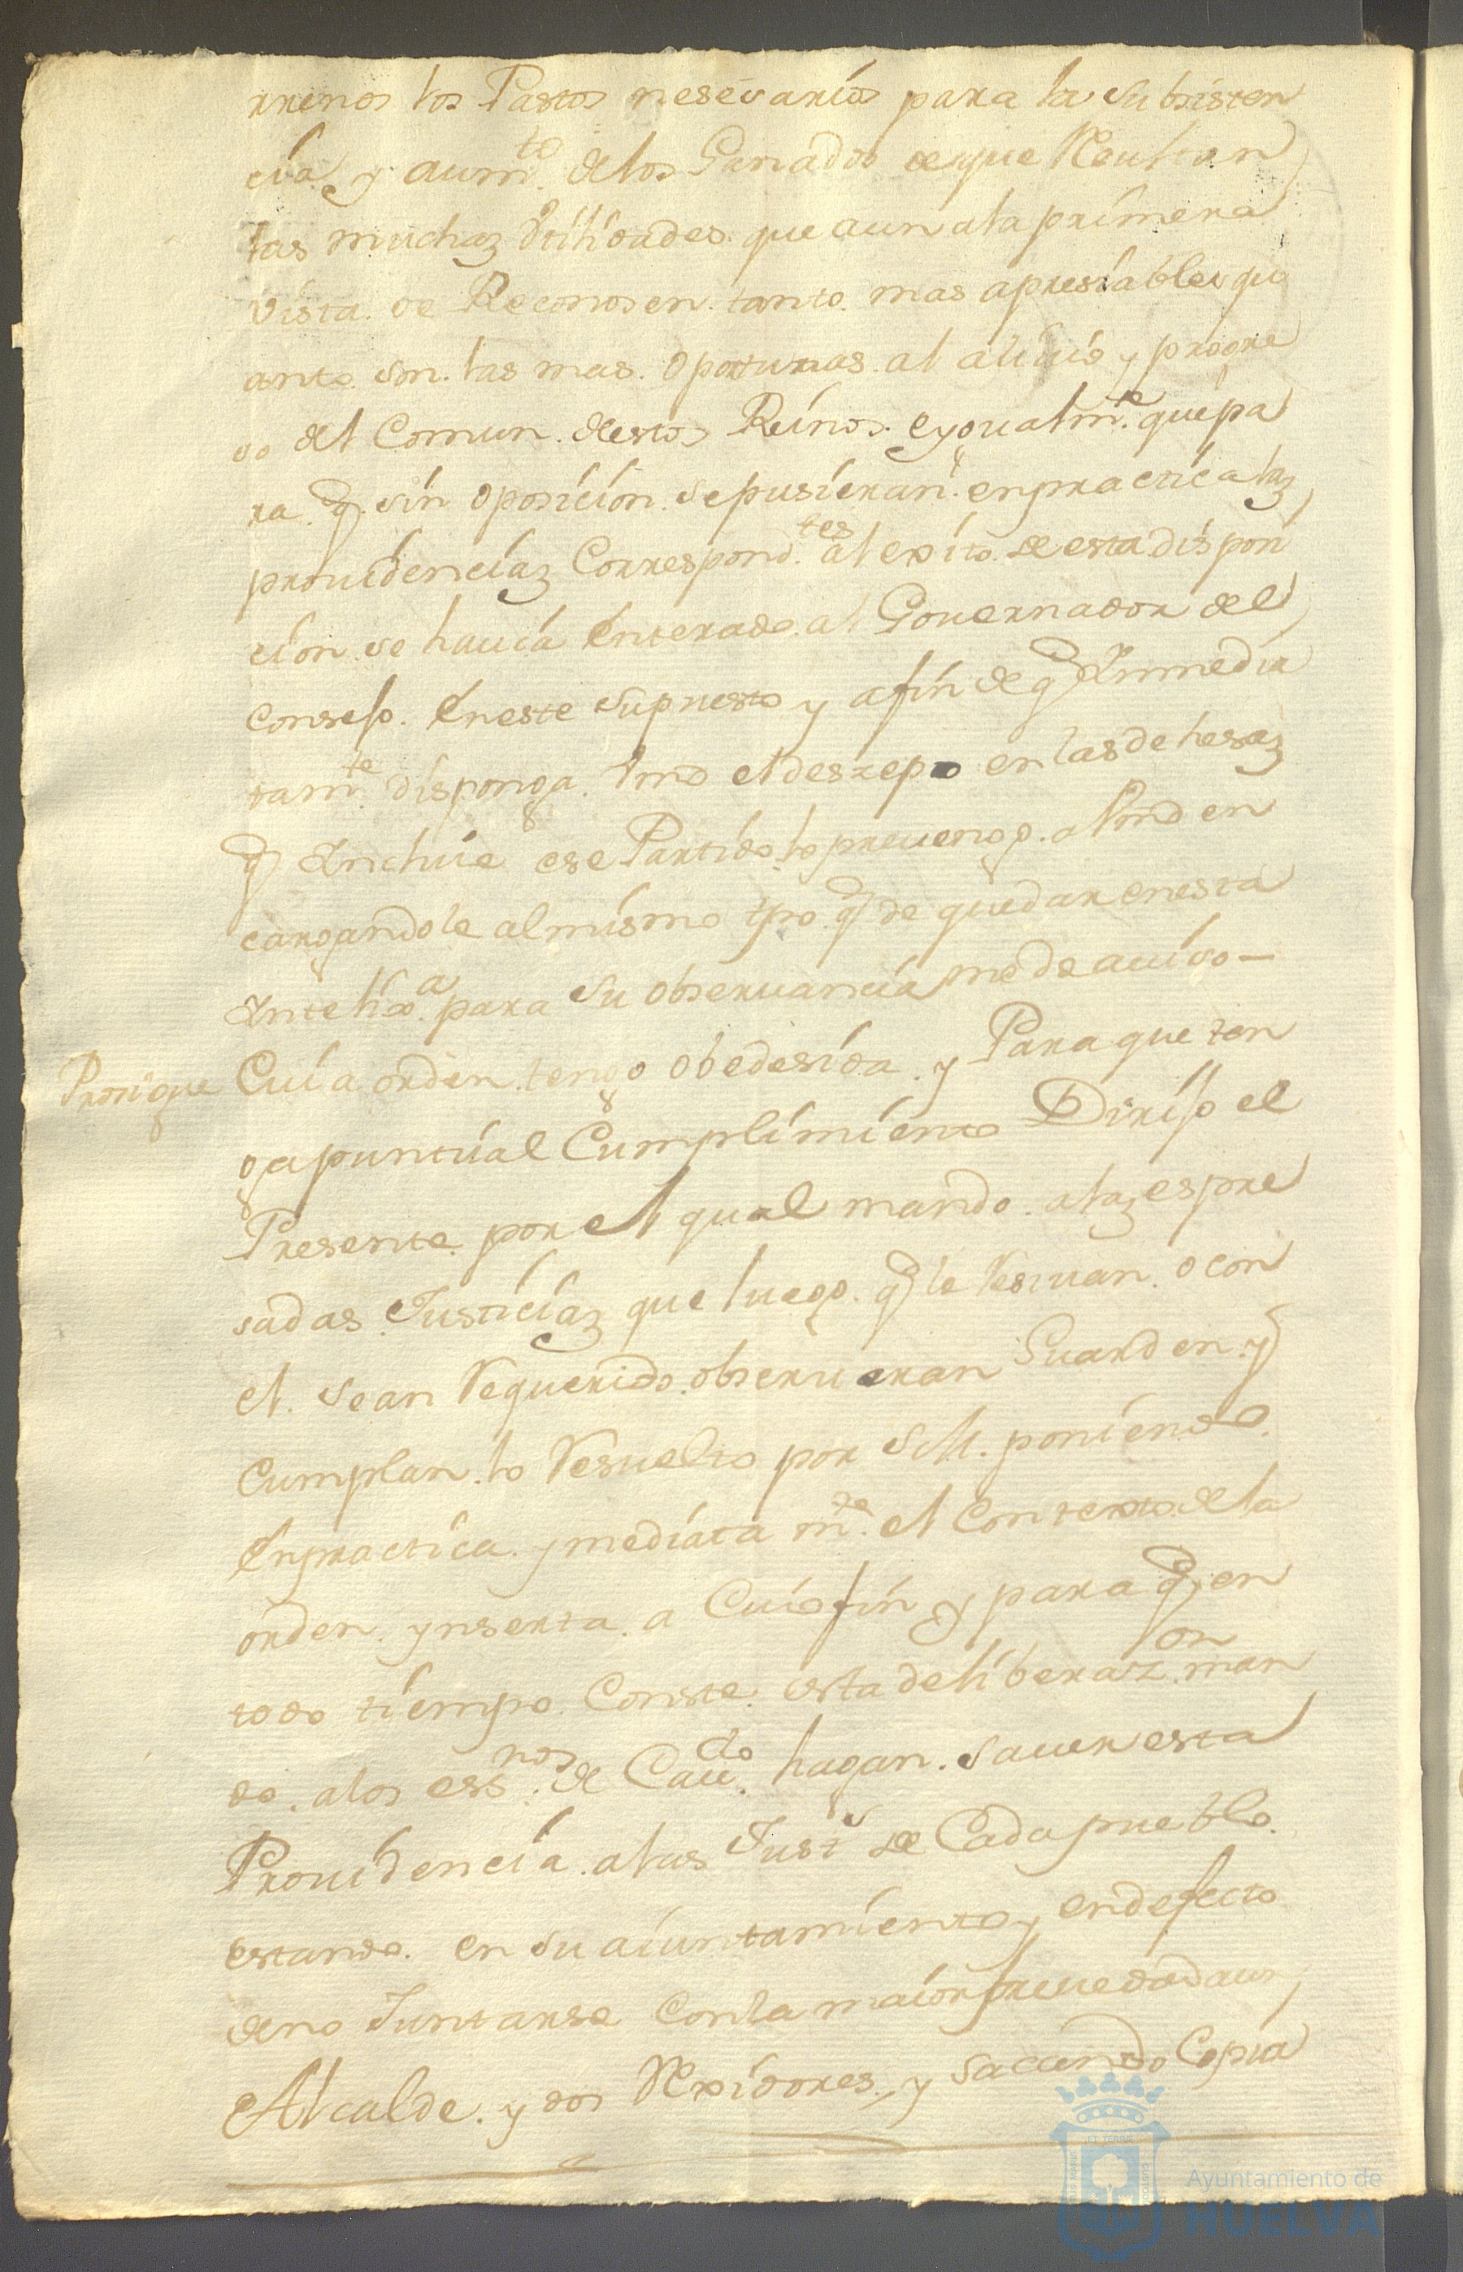 rrenos los Pastos nesesarios para la subsisten
cia, y aumto. de los Ganados de que Resultan
las muchas Vtilidades que aun a la primera
vista se Reconosen. tanto. mas apresiables qu
anto. son. las mas. oportunas. al aliuio y progre
so del Comun. destos Reinos. e ygualmte. que pa
ra. q. sin oposicion. se pusieran. en practica las
prouidencias Correspondtes. al exito. de esta dispori
cion se hauia enterado. al Gouernador del
consejo. en este supuesto y a fin de q Inmedia
tamte disponga. Vmd el desxepo en las dehesas
q Incluie ese Partido. lo preuengo. a Vmd en
cargandole al mismo tpo. q de quedar en esta
Inteliga. para su obseruancia me de auiso —
Prosigue Cuia orden. tengo obedesida. y Para que ten
ga puntual Cumplimiento Dirijo el
Presente. por el qual mando. a las espre
sadas. Justicias que luego. q le Resiuan. o con
el. sean Requerido. obserueran Guarden. y
cumplan. lo Resuelto por S.M. poniendo.
en practica. ymediata mte. el Contexto. de la
orden. ynserta. a Cuio fin y para q en
todo tiempo. Conste. esta deliberazon. man
do. a los essnos. de Caudo. hagan. sauer esta
Prouidencia. a las Justs de Cada pueblo.
estando. en su aiuntamiento y en defecto
de no Juntarse con la maior breuedad a un
Alcalde. y dos Rexidores, y sacando Copia
Ayuntamiento de
HUELVA